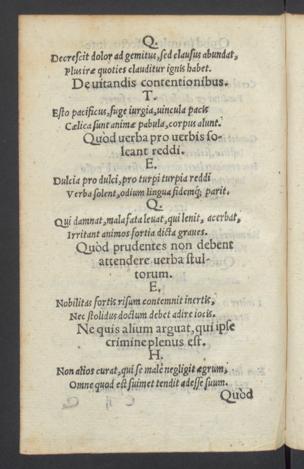 Q.
Decrescit dolor ad gemitus, sed clausus abundat,
Plus iræ quoties clauditur ignis habet.
De uitandis contentionibus.
T.
Esto pacificus, fuge iurgia, uincula pacis
Cælica sunt animæ pabula, corpus alunt.
Quòd uerba pro uerbis so-
leant reddi.
E.
Dulcia pro dulci, pro turpi turpia reddi
Verba solent, odium lingua fidemq; parit.
Q.
Qui damnat, mala fata leuat, qui lenit, acerbat,
Irritant animos fortia dicta graues.
Quòd prudentes non debent
attendere uerba stul-
torum.
E.
Nobilitas fortis risum contemnit inertis,
Nec stolidus doctum debet adire iocis.
Ne quis alium arguat, qui ipse
crimine plenus est.
H.
Non alios curat, qui se malè negligit ægrum,
Omne quod est suimet tendit adesse suum.
Quòd